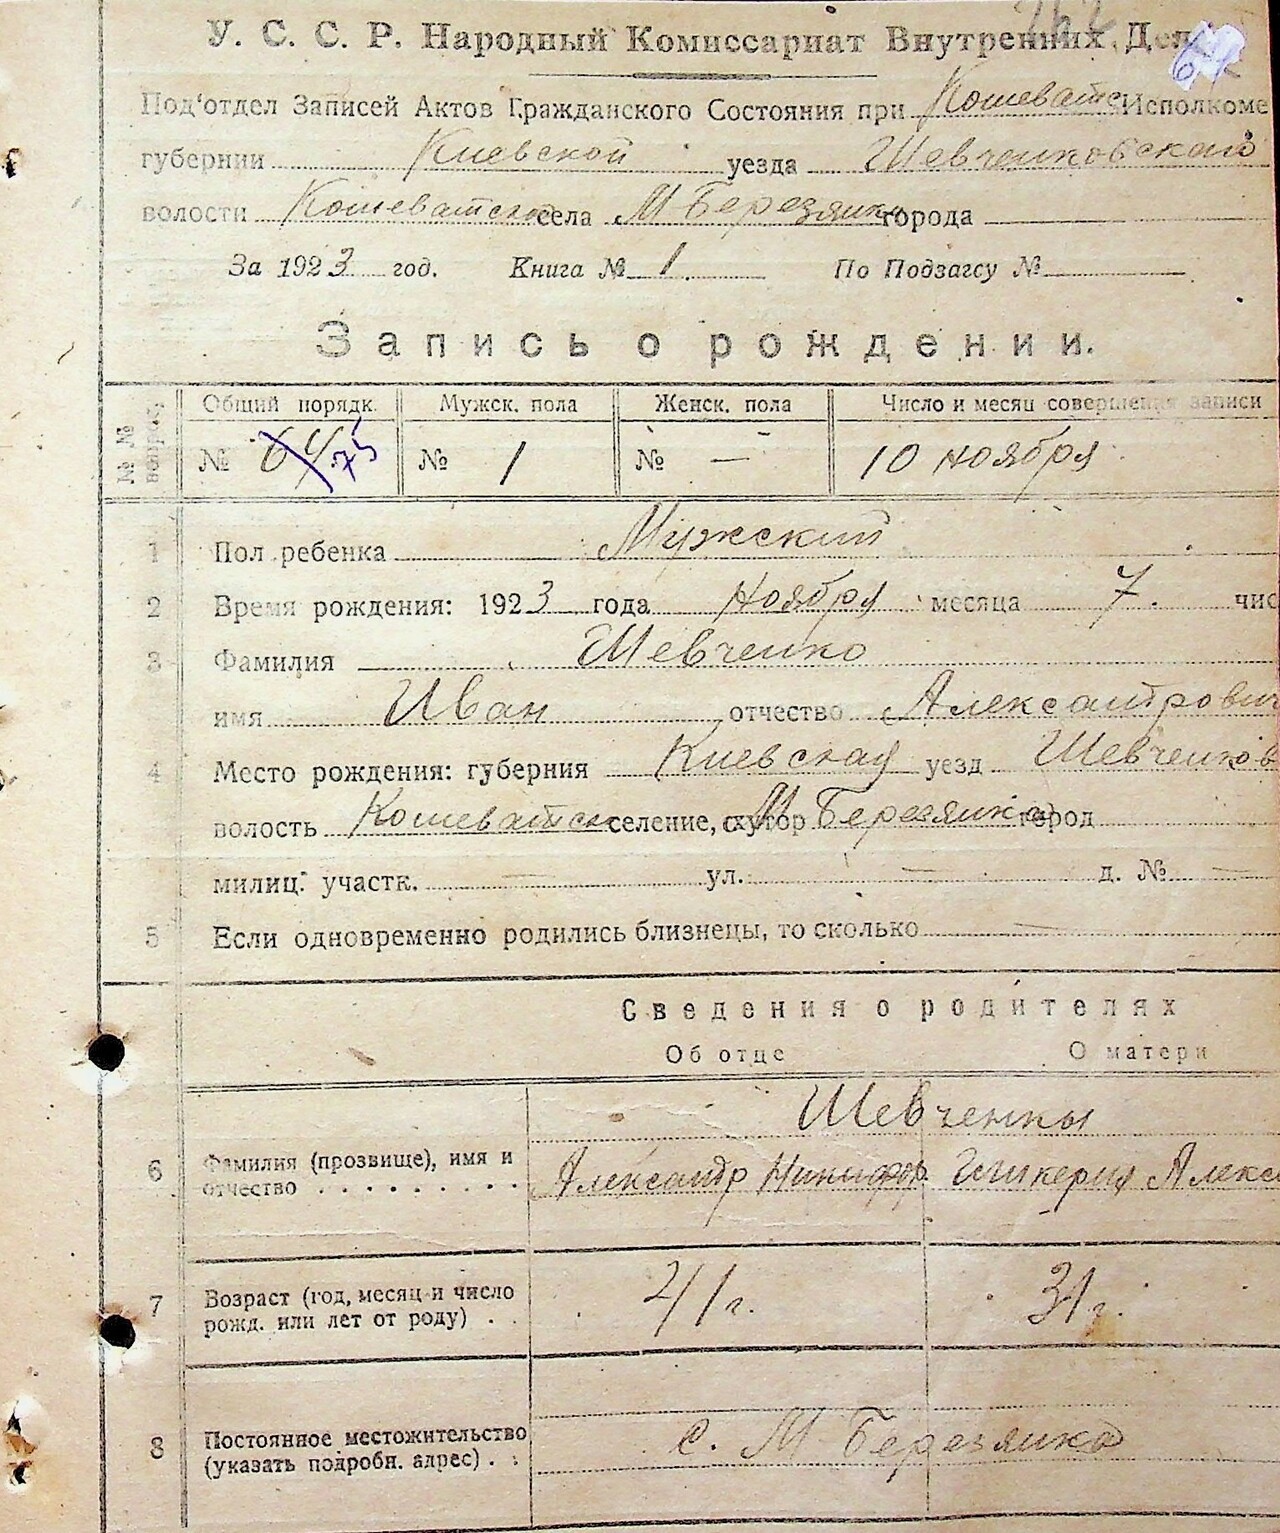 У. С. С. Р. Народный Комиссариат Внутренних Дел
Под'отдел Записей Актов Гражданского Состояния при Кошеватс Исполкоме
губернии Киевской уезда Шевченковской
волости Кошеватской села М Березянка города
За 1923 год. Книга № 1 По Подзагсу №
Запись о рождении.
№ № вопрос. Общий порядк. Мужск. пола Женск. пола Число и месяц совершения записи
№ 64 75 № 1 № — 10 ноября
1 Пол ребенка Мужский
2 Время рождения: 1923 года Ноября месяца 7. чис
3 Фамилия Шевченко
имя Иван отчество Александрович
4 Место рождения: губерния Киевская уезд Шевченков
волость Кошеватск селение, хутор М Березянка город
милиц. участк. — ул. — д. № —
5 Если одновременно родились близнецы, то сколько —
Сведения о родителях
Об отце О матери
Шевченки
6 Фамилия (прозвище), имя и
отчество . . . . . . . . . Александр Никифор. Гликерия Алекс
7 Возраст (год, месяц и число
рожд. или лет от роду) . . 41 г. 31 г.
8 Постоянное местожительство
(указать подробн. адрес) . . с. М Березянка